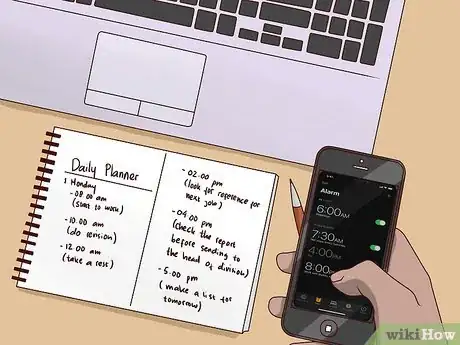 Daily Planner
1 Monday
- 08.00 am
(start to work)
- 10.00 am
(do revision)
- 12.00 am
(take a rest)
- 02:00 pm
(look for reference for
next job)
- 04.00 pm
(check the report
before sending to
the head of division)
- 5:00 pm
(make a list for
tomorrow)
Alarm
6:00AM
7:30AM
4:00AM
8:00
wikiHow